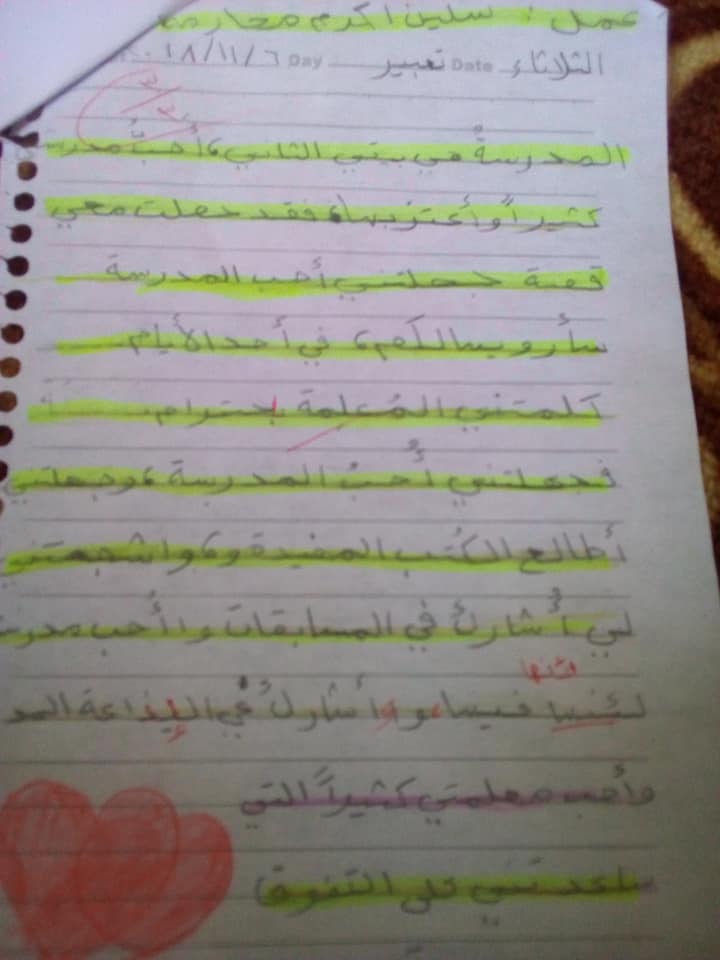 عمل : سلين اكرم معارمه
الثلاثاء Date تعبير Day ٢٠١٨/١١/٦
المدرسةُ هي بيتي الثاني ، أحبُّ مدرس
كثيراً وأعتز بها ، فقد حصلت معي
قصة جعلتني أحب المدرسة
سأرويها لكم ، في أحد الأيام
كلمتني المُعلمة بحترام
فجعلتني أُحبُ المدرسة ، وجعلتني
أطالع الكُتب المفيدة و ، واشجعتني
لي أُشاركُ في المسابقات و اأُحب مدرست
لأنها
لئنها فيها ، و أشاركُ في الإذاعة المد
وأُحب معلمتي كثيراً التي
ساعدتني على التفوق